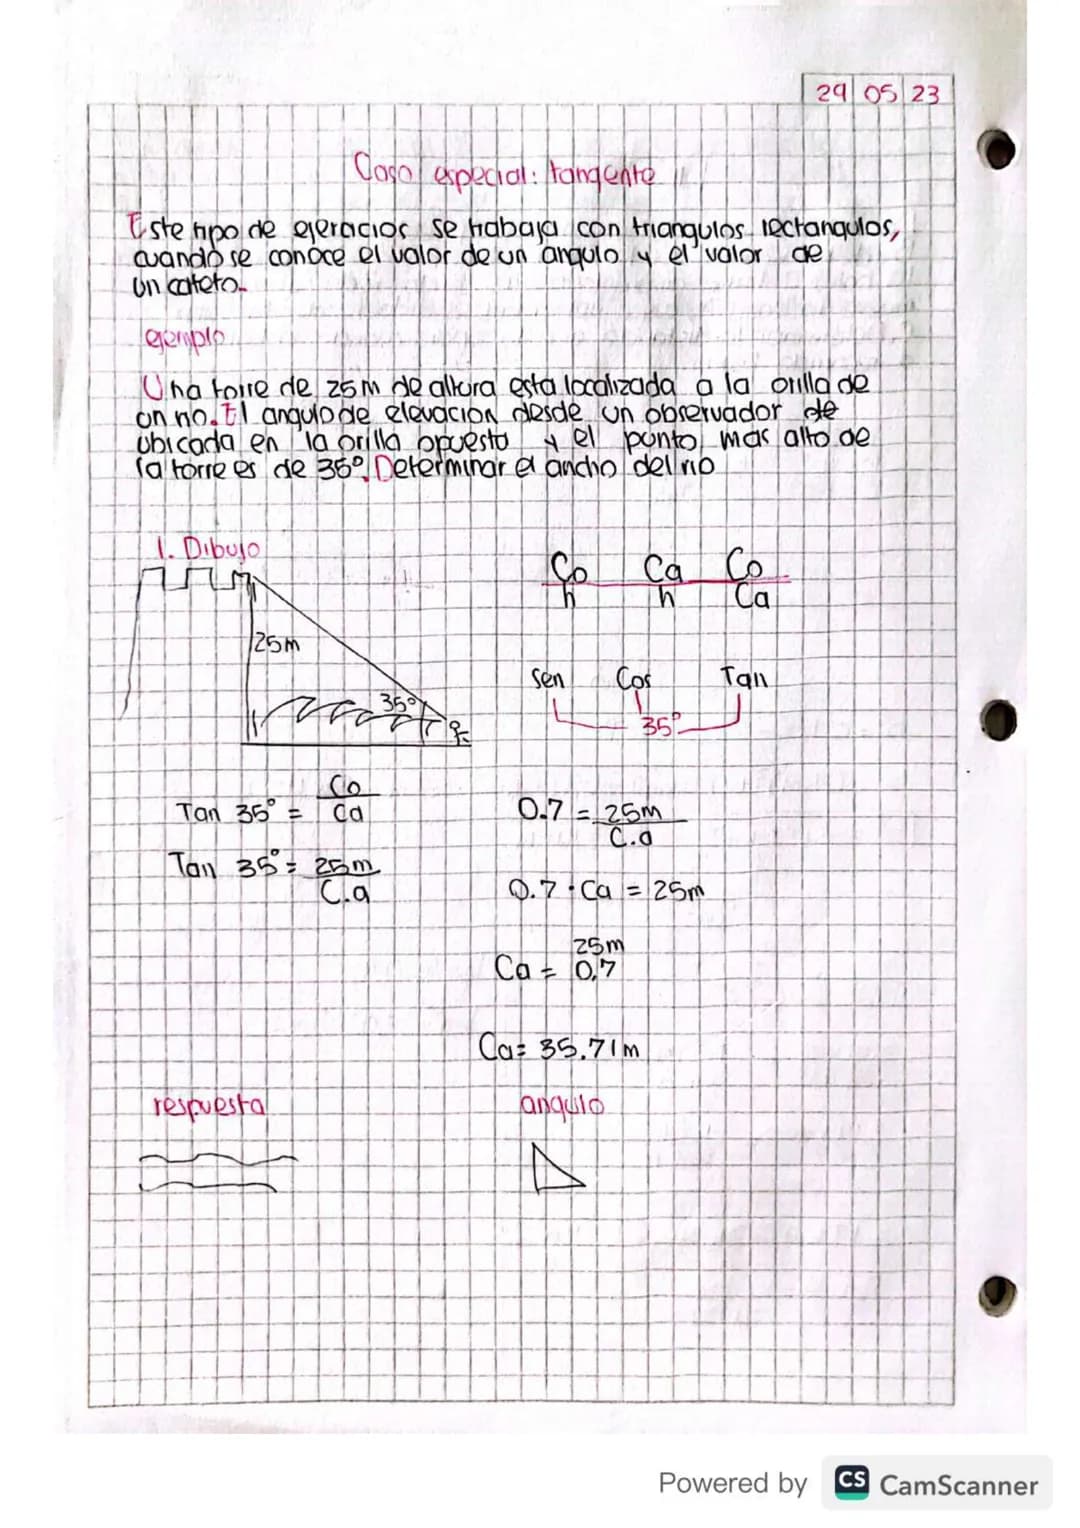 29 05 23
Caso especial: tangente
Este tipo de ejercicios se trabaja con triangulos rectangulos,
cuando se conoce el valor de un angulo y el valor de
un cateto.
ejemplo
Una torre de 25m de altura esta localizada a la orilla de
un rio. El angulo de elevacion desde un observador de
ubicada en la orilla opuesto y el punto mas alto de
la torre es de 35°. Determinar el ancho del rio
1. Dibujo
Co Ca Co
h h Ca
25m
35°
Sen Cos Tan
35°
Tan 35° = Co
Ca
0.7 = 25m
C.a
Tan 35° = 25m
C.a
0.7 · Ca = 25m
25m
Ca = 0,7
Ca = 35.71m
respuesta angulo
Powered by CS CamScanner